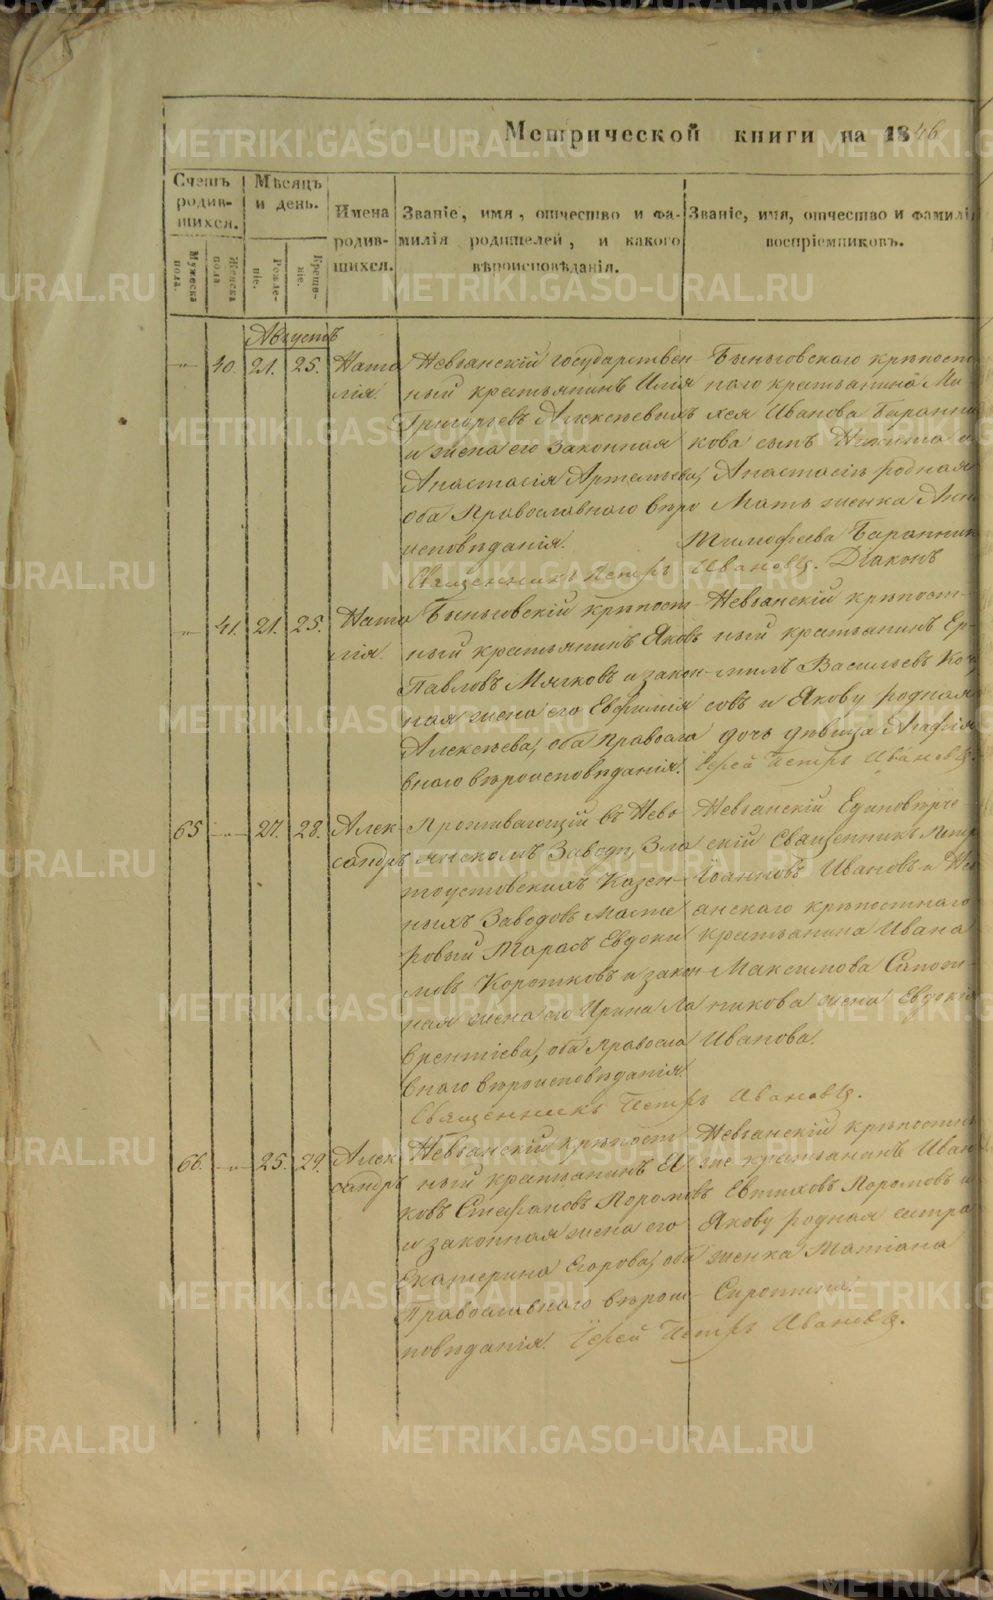 Метрической книги на 1846
Счетъ родив-шихся.
Мужеска пола.
Женска пола.
Мѣсяцъ и день.
Рожде-ніе.
Креще-ніе.
Имена родив-шихся.
Званіе, имя, отчество и фа-
милія родителей, и какого
вѣроисповѣданія.
Званіе, имя, отчество и фамилі
воспріемниковъ.
Августъ
„ 40. 21. 25. Ната
лія.
Невьянскій государствен
ный крестьянинъ Илія
Григорьевъ Алексѣевыхъ
и жена его законная
Анастасія Артемьева,
оба Православнаго вѣро
исповѣданія.
Быньговскаго крѣпост
наго крестьянина Ми-
хея Иванова Баранни
кова сынъ Никита и
Анастасіи родная
Мать женка Анн
Тимофеева Баранник
Священникъ Петръ Ивановъ. Діаконъ
„ 41. 21. 25. Ната
лія.
Быньговскій крѣпост-
ный крестьянинъ Яковъ
Павловъ Мягковъ и закон-
ная жена его Евфимія
Алексѣева, оба Правосла
внаго вѣроисповѣданія.
Невьянскій крѣпост-
ный крестьянинъ Ер-
милъ Васильевъ Ко
совъ и Якову родная
дочь дѣвица Агафія
Іерей Петръ Ивановъ.
65 „ 27. 28. Алек
сандръ
Проживающій въ Невь
янскомъ Заводѣ, Зла
тоустовскихъ Казен-
ныхъ Заводовъ Масте
ровый Тарасъ Евдоки
мовъ Коротковъ и закон-
ная жена его Ирина Ла
врентіева, оба Правосла
внаго вѣроисповѣданія.
Невьянскій Единовѣрче-
скій Священникъ Петръ
Іоанновъ Ивановъ и Нев
янскаго крѣпостнаго
крестьянина Ивана
Максимова Сапож-
никова жена Евдокія
Иванова.
Священникъ Петръ Ивановъ.
66. „ 25. 29. Алек
сандръ
Невьянскій крѣпост
ный крестьянинъ Я
ковъ Стефановъ Поромовъ
и законная жена его
Екатерина Егорова, оба
Православнаго вѣроис-
повѣданія.
Невьянскій крѣпостны
же крестьянинъ Иван
Евтиховъ Поромовъ и
Якову родная сестра
женка Матіана
Сиротина.
Іерей Петръ Ивановъ.
METRIKI.GASO-URAL.RU